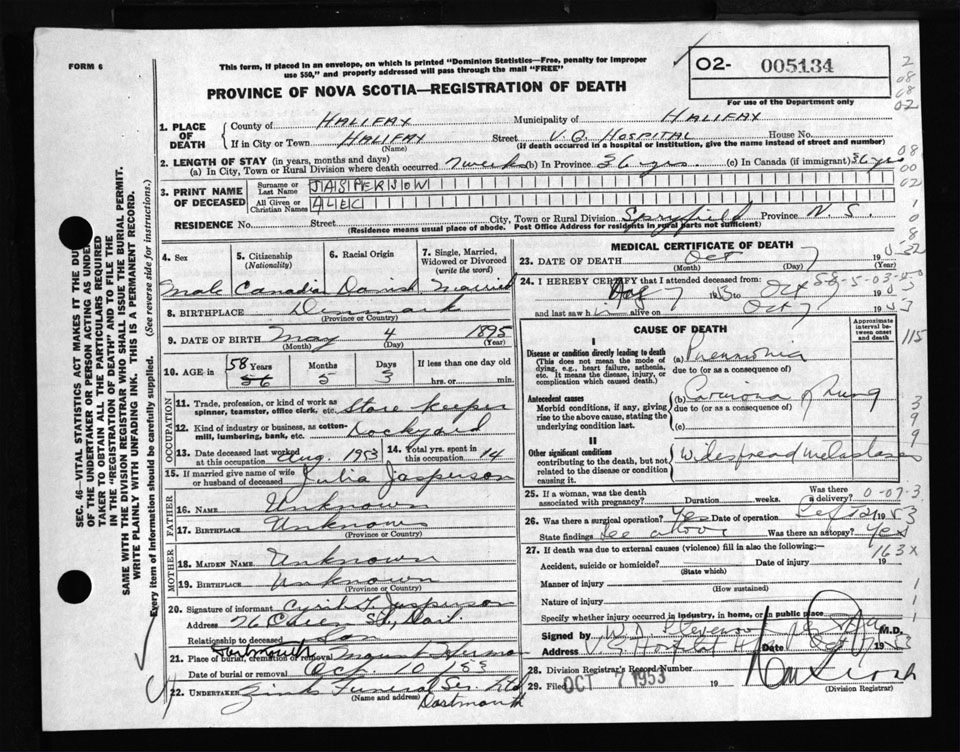 FORM 6
This form, if placed in an envelope, on which is printed "Dominion Statistics—Free, penalty for improper
use $50," and properly addressed will pass through the mail "FREE"
PROVINCE OF NOVA SCOTIA—REGISTRATION OF DEATH
O2- 005134
For use of the Department only
2
08
08
02
1. PLACE OF DEATH
County of HALIFAX Municipality of HALIFAX
If in City or Town HALIFAX Street V.G. HOSPITAL House No.
(Name) (If death occurred in a hospital or institution, give the name instead of street and number)
2. LENGTH OF STAY (in years, months and days)
(a) In City, Town or Rural Division where death occurred 7 weeks (b) In Province 36 yrs. (c) In Canada (if immigrant) 36 yrs
08
00
02
3. PRINT NAME OF DECEASED
Surname or Last Name JASPERSON
All Given or Christian Names ALEC
RESIDENCE No. Street City, Town or Rural Division Spryfield Province N.S.
(Residence means usual place of abode. Post Office Address for residents in rural parts not sufficient)
4. Sex
Male
5. Citizenship
(Nationality)
Canadian
6. Racial Origin
Danish
7. Single, Married, Widowed or Divorced
(write the word)
Married
8. BIRTHPLACE Denmark
(Province or Country)
9. DATE OF BIRTH May 4 1895
(Month) (Day) (Year)
10. AGE in 58 Years 56 Months 5 Days 3 If less than one day
hrs. or min.
OCCUPATION
11. Trade, profession, or kind of work as
spinner, teamster, office clerk, etc. Store keeper
12. Kind of industry or business, as cotten-
mill, lumbering, bank, etc. Dockyard
13. Date deceased last worked at this occupation Aug. 1953
14. Total yrs. spent in this occupation 14
15. If married give name of wife
or husband of deceased Julia Jasperson
FATHER
16. NAME Unknown
17. BIRTHPLACE Unknown
(Province or Country)
MOTHER
18. MAIDEN NAME Unknown
19. BIRTHPLACE Unknown
(Province or Country)
20. Signature of informant Cyril F. Jasperson
Address 26 St., Dart.
Relationship to deceased Son
21. Place of burial, cremation or removal Dartmouth Mount Hermon
Date of burial or removal Oct. 10 1953
22. UNDERTAKER Zinks Funeral Ser. Ltd
(Name and address)
Dartmouth
MEDICAL CERTIFICATE OF DEATH
23. DATE OF DEATH Oct 7 1953
(Month) (Day) (Year)
24. I HEREBY CERTIFY that I attended deceased from:
Aug 7 1953 to Oct 7 1953
and last saw h alive on Oct 7 1953
CAUSE OF DEATH
Approximate interval between onset and death
I
Disease or condition directly leading to death
(This does not mean the mode of
dying, e.g., heart failure, asthenia,
etc. It means the disease, injury, or
complication which caused death.)
(a) Pneumonia
due to (or as a consequence of)
Antecedent causes
Morbid conditions, if any, giving
rise to the above cause, stating the
underlying condition last.
(b) Carcinoma of lung
due to (or as a consequence of)
(c)
II
Other significant conditions
contributing to the death, but not
related to the disease or condition
causing it.
Widespread metastases
115
3
9
9
25. If a woman, was the death
associated with pregnancy? Duration weeks. Was there a delivery? 0-07-3
26. Was there a surgical operation? Yes Date of operation Sept 21 1953
State findings See above Was there an autopsy? Yes
27. If death was due to external causes (violence) fill in also the following:—
163X
Accident, suicide or homicide? Date of injury 19
(State which)
Manner of injury
(How sustained)
Nature of injury
Specify whether injury occurred in industry, in home, or in public place
Signed by M.D.
Address Date Oct 7 1953
28. Division Registrar's Record Number
29. Filed OCT 7 1953 19
(Division Registrar)
SEC. 46—VITAL STATISTICS ACT MAKES IT THE DUTY
OF THE UNDERTAKER OR PERSON ACTING AS UNDER-
TAKER TO OBTAIN ALL THE PARTICULARS REQUIRED
IN THE "REGISTRATION OF DEATH" AND TO FILE THE
SAME WITH THE DIVISION REGISTRAR WHO SHALL ISSUE THE BURIAL PERMIT.
WRITE PLAINLY WITH UNFADING INK. THIS IS A PERMANENT RECORD.
Every item of information should be carefully supplied. (See reverse side for instructions.)